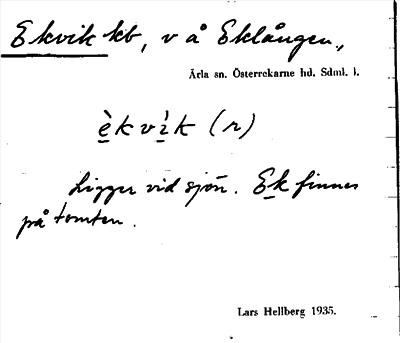 Ekvik kb, v å Eklången.,
Ärla sn. Österrekarne hd. Sdml. l.
è̲kvì̲k (r)
Ligger vid sjön. Ek finnes
på tomten.
Lars Hellberg 1935.